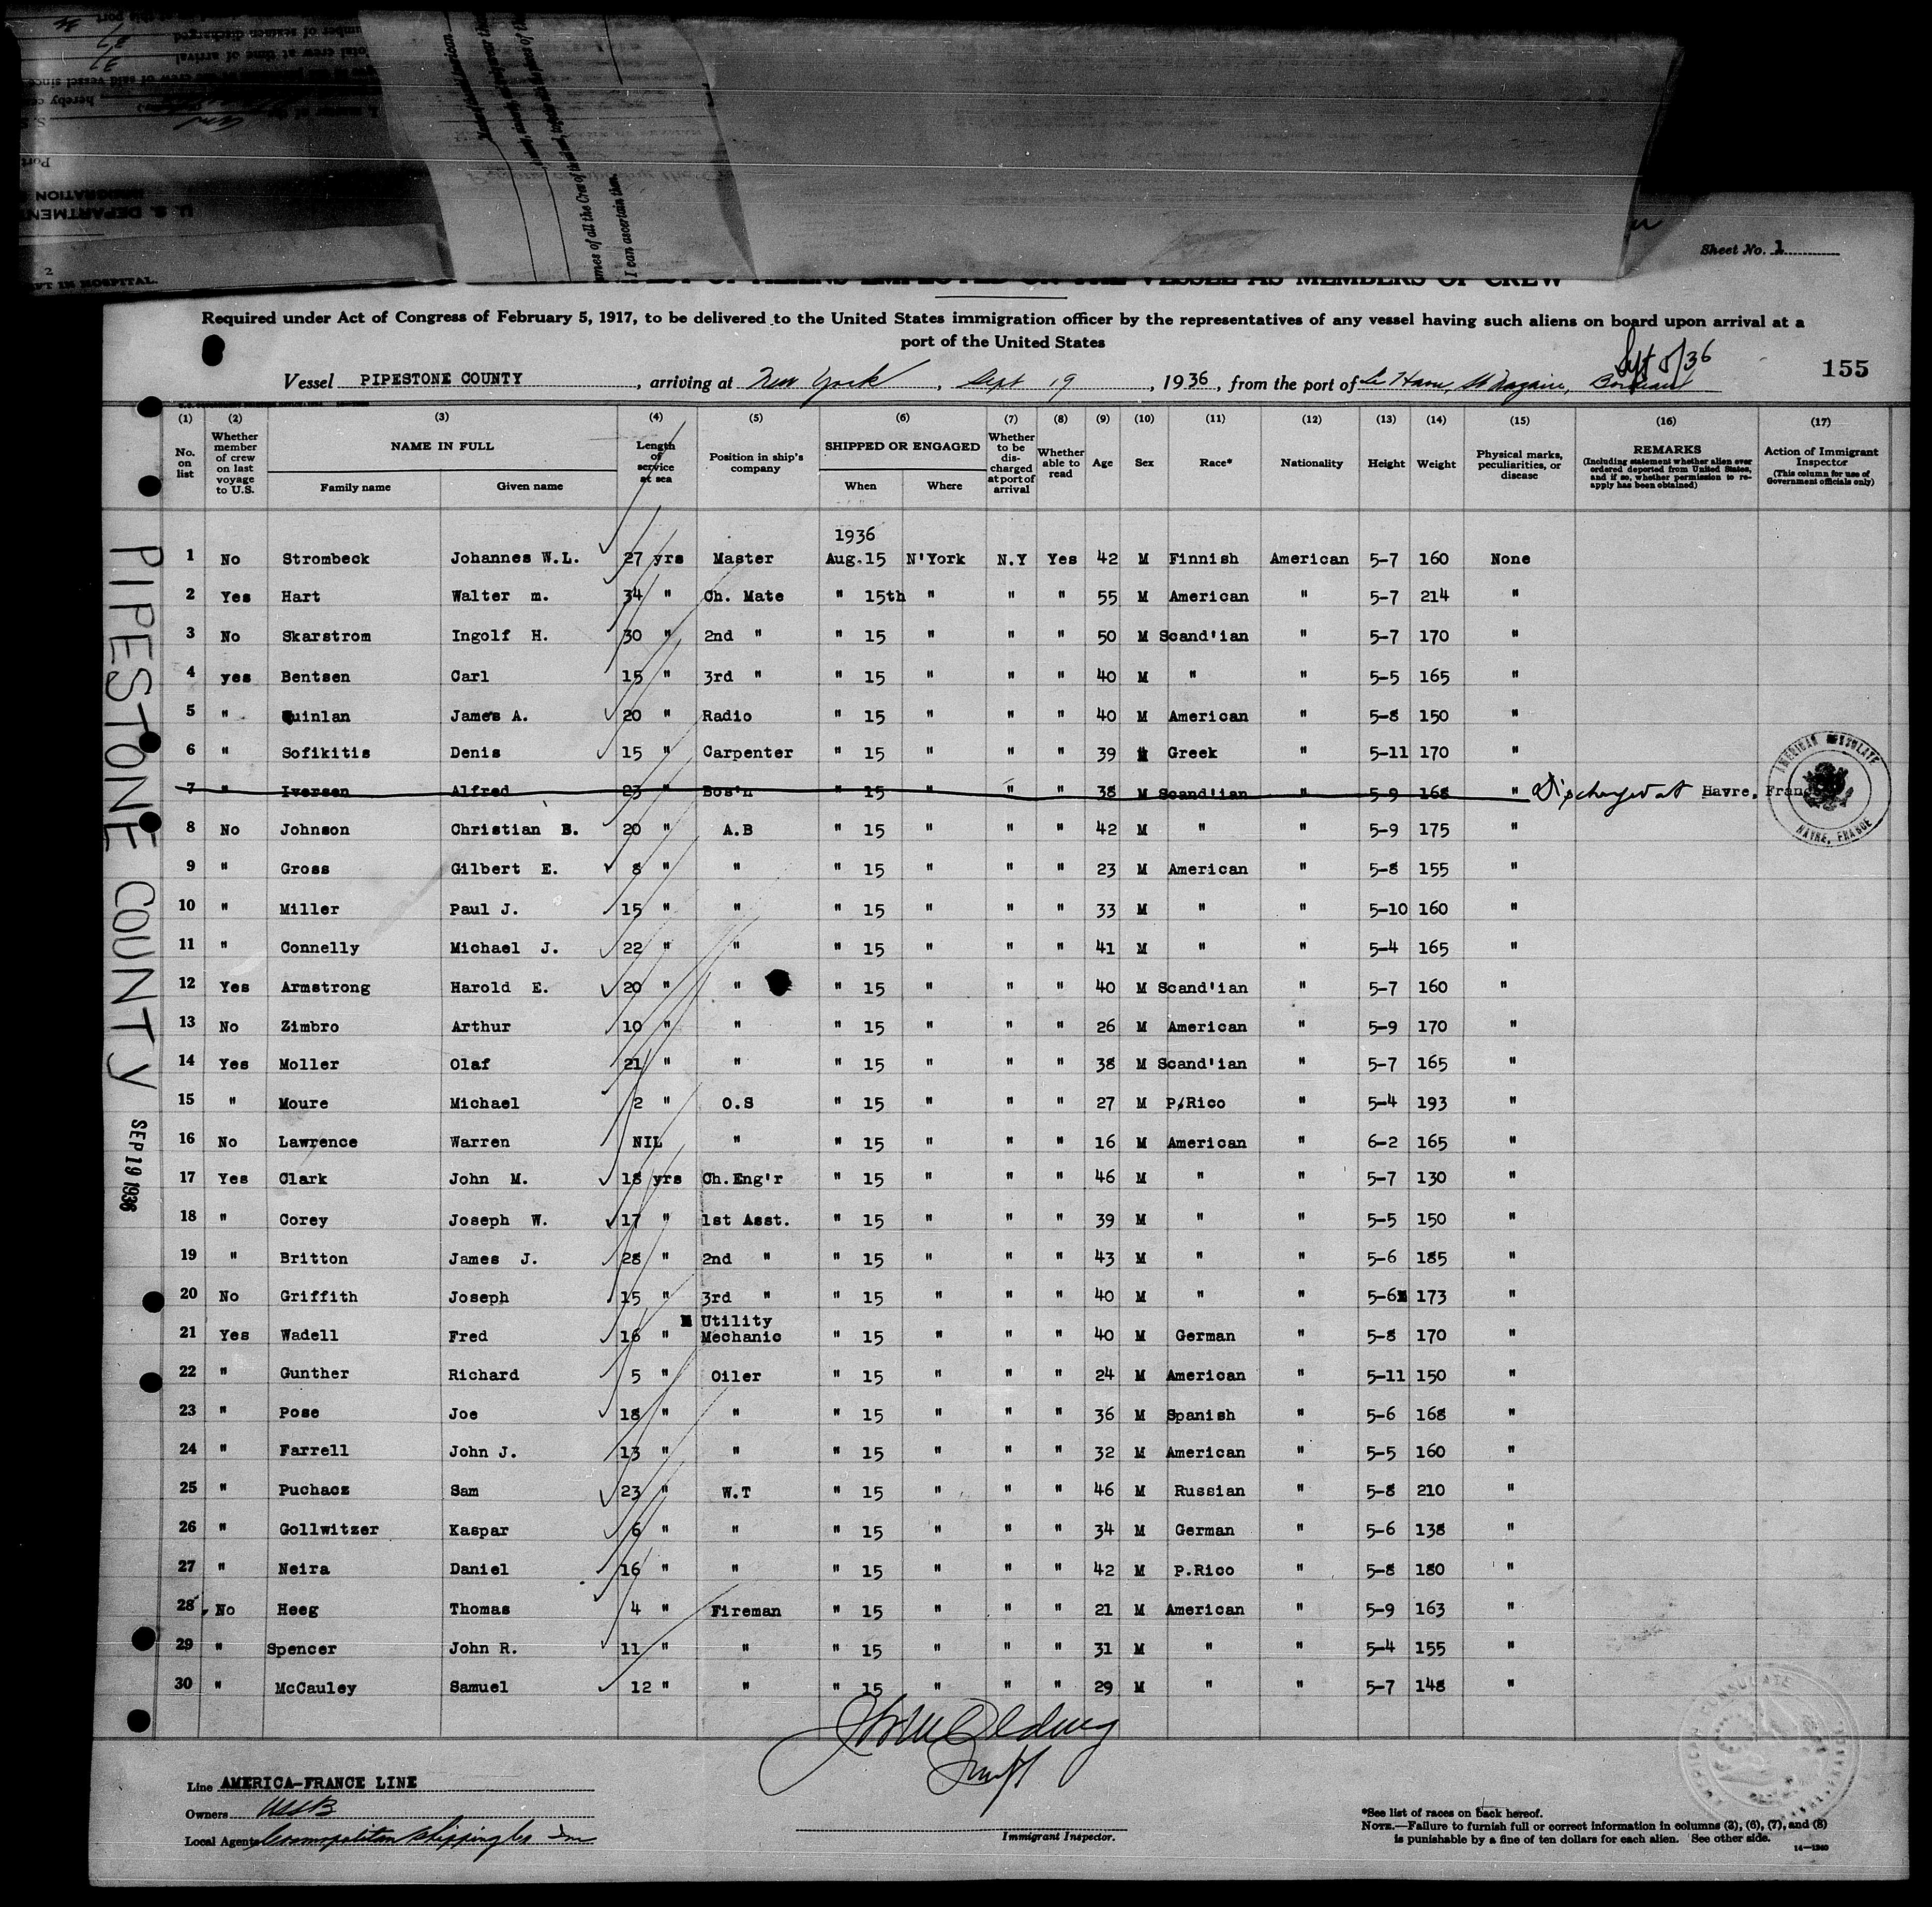 Sheet No. 1
Required under Act of Congress of February 5, 1917, to be delivered to the United States immigration officer by the representatives of any vessel having such aliens on board upon arrival at a
port of the United States
Sept 8/36
155
Vessel PIPESTONE COUNTY, arriving at New York, Sept 19, 1936, from the port of Le Havre, St Nazaire, Bordeaux
(1) (2) (3) (4) (5) (6) (7) (8) (9) (10) (11) (12) (13) (14) (15) (16) (17)
No. on list
Whether member of crew on last voyage to U.S.
NAME IN FULL
Family name
Given name
Length of service at sea
Position in ship's company
SHIPPED OR ENGAGED
When
Where
Whether to be discharged at port of arrival
Whether able to read
Age
Sex
Race*
Nationality
Height
Weight
Physical marks, peculiarities, or disease
REMARKS
(Including statement whether alien ever ordered deported from United States, and if so, whether permission to re-apply has been obtained)
Action of Immigrant Inspector
(This column for use of Government officials only)
1936
1 No Strombeck Johannes W.L. 27 yrs Master Aug.15 N'York N.Y Yes 42 M Finnish American 5-7 160 None
2 Yes Hart Walter m. 34 " Ch. Mate " 15th " " " 55 M American " 5-7 214 "
3 No Skarstrom Ingolf H. 30 " 2nd " " 15 " " " 50 M Scand'ian " 5-7 170 "
4 yes Bentsen Carl 15 " 3rd " " 15 " " " 40 M " " 5-5 165 "
5 " Quinlan James A. 20 " Radio " 15 " " " 40 M American " 5-8 150 "
6 " Sofikitis Denis 15 " Carpenter " 15 " " " 39 M Greek " 5-11 170 "
7 " Iversen Alfred 23 " Bos'n " 15 " " " 38 M Scand'ian " 5-9 168 " Discharged at Havre, France
AMERICAN CONSULATE
HAVRE, FRANCE
8 No Johnson Christian B. 20 " A.B " 15 " " " 42 M " " 5-9 175 "
9 " Gross Gilbert E. 8 " " " 15 " " " 23 M American " 5-8 155 "
10 " Miller Paul J. 15 " " " 15 " " " 33 M " " 5-10 160 "
11 " Connelly Michael J. 22 " " " 15 " " " 41 M " " 5-4 165 "
12 Yes Armstrong Harold E. 20 " " " 15 " " " 40 M Scand'ian " 5-7 160 "
13 No Zimbro Arthur 10 " " " 15 " " " 26 M American " 5-9 170 "
14 Yes Moller Olaf 21 " " " 15 " " " 38 M Scand'ian " 5-7 165 "
15 " Moure Michael 2 " O.S " 15 " " " 27 M P.Rico " 5-4 193 "
16 No Lawrence Warren NIL " " 15 " " " 16 M American " 6-2 165 "
17 Yes Clark John M. 18 yrs Ch.Eng'r " 15 " " " 46 M " " 5-7 130 "
18 " Corey Joseph W. 17 " 1st Asst. " 15 " " " 39 M " " 5-5 150 "
19 " Britton James J. 28 " 2nd " " 15 " " " 43 M " " 5-6 185 "
20 No Griffith Joseph 15 " 3rd " " 15 " " " 40 M " " 5-6 173 "
21 Yes Wadell Fred 16 " Utility Mechanic " 15 " " " 40 M German " 5-8 170 "
22 " Gunther Richard 5 " Oiler " 15 " " " 24 M American " 5-11 150 "
23 " Pose Joe 18 " " " 15 " " " 36 M Spanish " 5-6 168 "
24 " Farrell John J. 13 " " " 15 " " " 32 M American " 5-5 160 "
25 " Puchacz Sam 23 " W.T " 15 " " " 46 M Russian " 5-8 210 "
26 " Gollwitzer Kaspar 6 " " " 15 " " " 34 M German " 5-6 138 "
27 " Neira Daniel 16 " " " 15 " " " 42 M P.Rico " 5-8 180 "
28 No Heeg Thomas 4 " Fireman " 15 " " " 21 M American " 5-9 163 "
29 " Spencer John R. 11 " " " 15 " " " 31 M " " 5-4 155 "
30 " McCauley Samuel 12 " " " 15 " " " 29 M " " 5-7 148 "
PIPESTONE COUNTY
SEP 19 1936
Line AMERICA-FRANCE LINE
Owners USSB
Local Agents Cosmopolitan Shipping Co Inc
Immigrant Inspector.
*See list of races on back hereof.
NOTE.—Failure to furnish full or correct information in columns (2), (6), (7), and (8)
is punishable by a fine of ten dollars for each alien. See other side.
14—1240